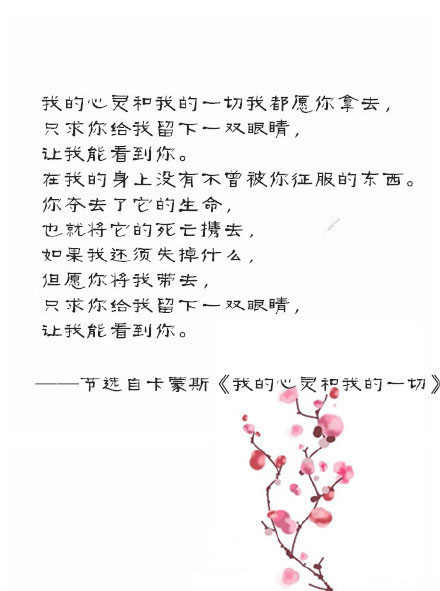 我的心灵和我的一切我都愿你拿去，
只求你给我留下一双眼睛，
让我能看到你。
在我的身上没有不曾被你征服的东西。
你夺去了它的生命，
也就将它的死亡携去，
如果我还须失掉什么，
但愿你将我带去，
只求你给我留下一双眼睛，
让我能看到你。
——节选自卡蒙斯《我的心灵和我的一切》